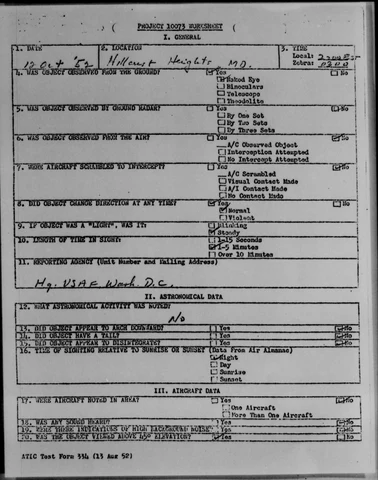 PROJECT 10073 WORKSHEET
I. GENERAL
1. DATE
2. LOCATION
3. TIME
12 Oct '52
Hillcrest Heights, MD.
Local:
Zebra:
4. WAS OBJECT OBSERVED FROM THE GROUND?
Yes
No
Naked Eye
Binoculars
Telescope
Theodolite
5. WAS OBJECT OBSERVED BY GROUND RADAR?
Yes
No
By One Set
By Two Sets
By Three Sets
6. WAS OBJECT OBSERVED FROM THE AIR?
Yes
No
A/C Observed Object
Interception Attempted
No Intercept Attempted
7. WERE AIRCRAFT SCRAMBLED TO INTERCEPT?
Yes
No
A/C Scrambled
Visual Contact Made
A/I Contact Made
No Contact Made
8. DID OBJECT CHANGE DIRECTION AT ANY TIME?
Yes
No
Normal
Violent
9. IF OBJECT WAS A "LIGHT", WAS IT:
Blinking
Steady
10. LENGTH OF TIME IN SIGHT:
1-15 Seconds
1-5 Minutes
Over 10 Minutes
11. REPORTING AGENCY (Unit Number and Mailing Address)
Hq. USAF Wash. D.C.
II. ASTRONOMICAL DATA
12. WHAT ASTRONOMICAL ACTIVITY WAS NOTED?
No
13. DID OBJECT APPEAR TO ARCH DOWNWARD?
Yes
No
14. DID OBJECT HAVE A TAIL?
Yes
No
15. DID OBJECT APPEAR TO DISINTEGRATE?
Yes
No
16. TIME OF SIGHTING RELATIVE TO SUNRISE OR SUNSET (Data From Air Almanac)
Night
Day
Sunrise
Sunset
III. AIRCRAFT DATA
17. WERE AIRCRAFT NOTED IN AREA?
Yes
No
One Aircraft
More Than One Aircraft
18. WAS ANY SOUND HEARD?
Yes
No
19. WERE THERE INDICATIONS OF HIGH BACKGROUND NOISE?
Yes
No
20. WAS THE OBJECT VIEWED ABOVE 45° ELEVATION?
Yes
No
ATIC Test Form 334 (13 Aug 52)